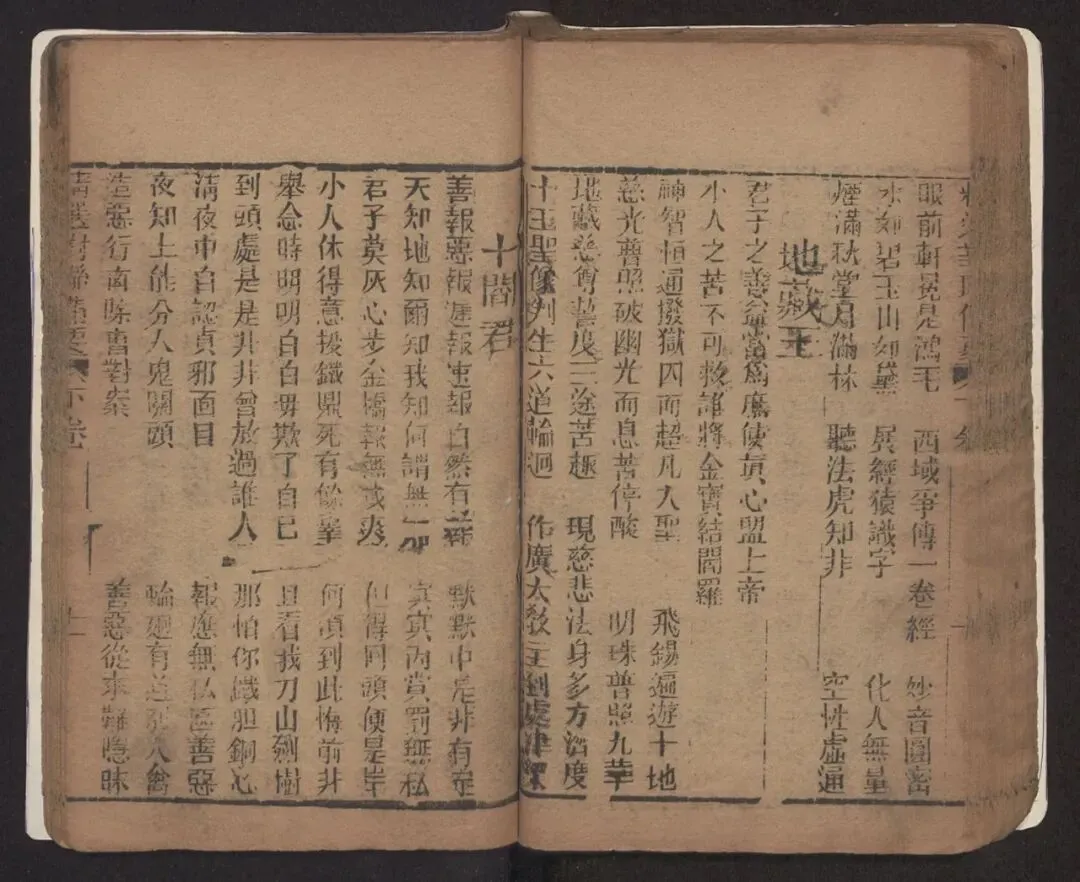 眼前軒冕是鴻毛 西域爭傳一卷經 妙音圓密
水如碧玉山如黛 展經猿識字 化人無量
煙滿秋堂月滿林 聽法虎知非 空性虛通
地藏王
君子之善 當為鷹使眞心盟上帝
小人之苦不可救誰將金寶結閻羅
神智恒通撥獄囚而超凡入聖 飛錫遍遊十地
慈光普照破幽光而息苦停酸 明珠普照九華
地藏慈尊誓度三途苦趣 現慈悲法身多方濟度
十王聖像判生六道輪迴 作廣大教主到處津梁
十閻君
善報惡報遲報速報自然有報 默默中是非有在
天知地知爾知我知何謂無知 冥冥內賞罰無私
君子莫灰心步金橋報無或爽 但得回頭便是岸
小人休得意投鐵鼎死有餘辜 何須到此悔前非
舉念時明明白白毋欺了自己 且看我刀山劍樹
到頭處是是非非曾放過誰人 那怕你鐵胆銅心
清夜中自認貞邪面目 報應無私區善惡
夜知上能分人鬼關頭 輪廻有道別人禽
造惡行南縣曹對案 善惡從來難隱昧
精選對聯 下卷 十一